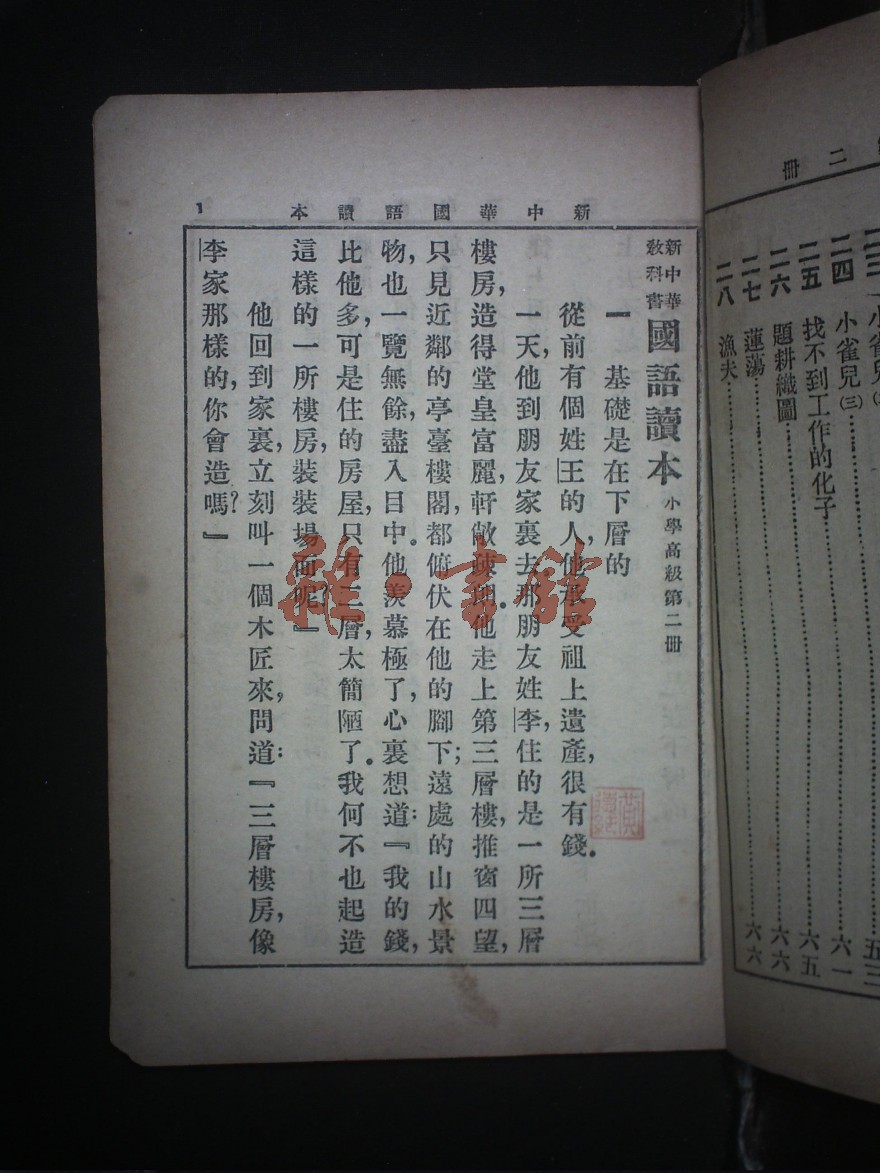 新中華國語讀本
1
新中華
教科書
國語讀本 小學高級第二冊
一 基礎是在下層的
從前有個姓王的人，他承受祖上遺產，很有錢。
一天，他到朋友家裏去，那朋友姓李，住的是一所三層
樓房，造得堂皇富麗，軒敞疎朗。他走上第三層樓，推窗四望，
只見近鄰的亭臺樓閣，都俯伏在他的腳下；遠處的山水景
物，也一覽無餘，盡入目中。他羨慕極了，心裏想道：『我的錢，
比他多，可是住的房屋，只有二層，太簡陋了。我何不也起造
這樣的一所樓房，裝裝場面呢？』
他回到家裏，立刻叫一個木匠來，問道：『三層樓房，像
李家那樣的，你會造嗎？』
二冊
小雀兒
二四 小雀兒(三) 六一
二五 找不到工作的化子 六五
二六 題耕織圖 六六
二七 蓮蕩 六六
二八 漁夫
雜·書館